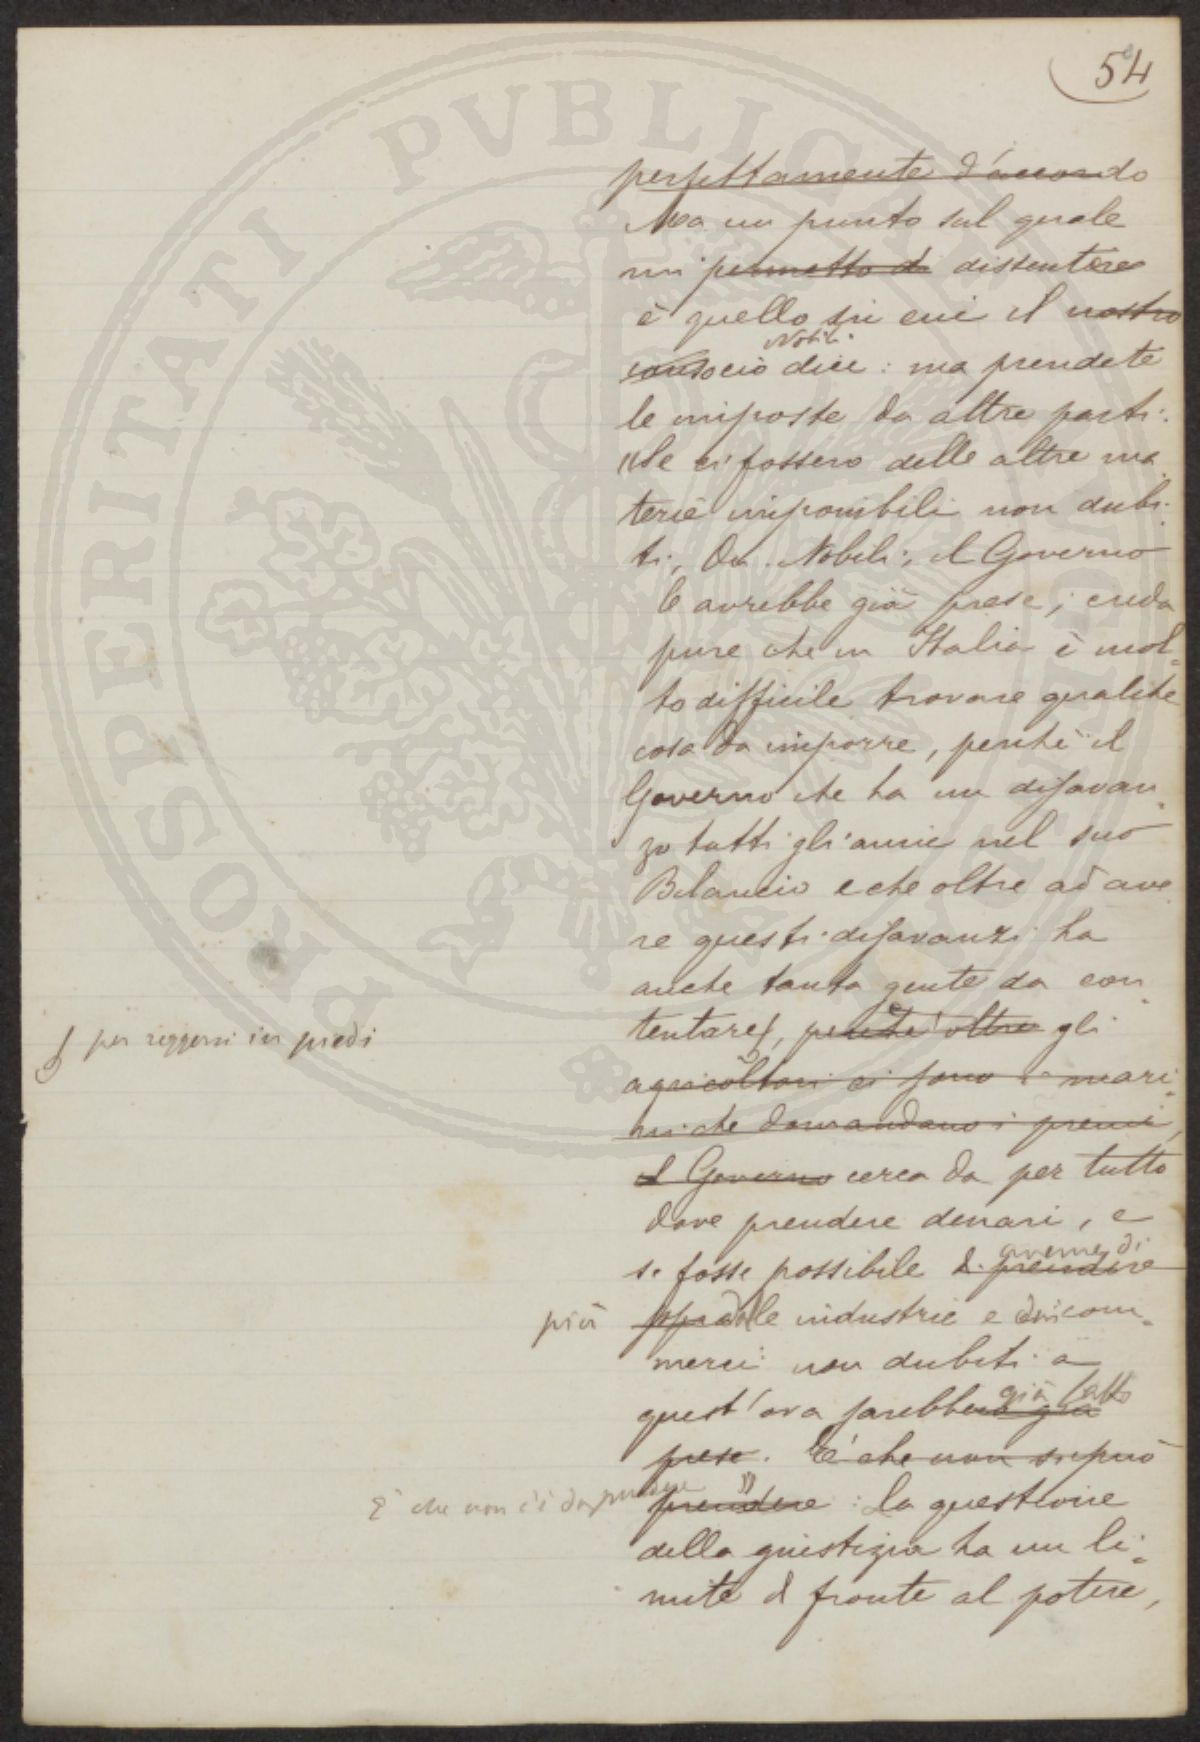 54
perfettamente d'accordo
Ma un punto sul quale
mi permetto di dissentire
è quello in cui il nostro
Nobili
consocio dice: ma prendete
le imposte da altre parti.
"Se ci fossero delle altre ma
terie imponibili non dubi-
ti, On. Nobili, il Governo
le avrebbe già prese; creda
pure che in Italia è mol-
to difficile trovare qualche
cosa da imporre, perchè il
Governo che ha un disavan-
zo tutti gli annie nel suo
Bilancio e che oltre ad ave
re questi disavanzi ha
anche tanta gente da con-
tentare, perchè oltre gli
per reggersi in piedi
agricoltori ci sono i mari-
ni che domandano i premi,
il Governo cerca da per tutto
dove prendere denari, e
averne di
se fosse possibile di prendere
più
sopra dalle industrie e dai com-
merci non dubiti a
già fatto
quest'ora sarebbero già
prese. È che non si può
È che non c'è da prendere
prendere: la questione
della giustizia ha un li-
mite di fronte al potere,
PROSPERITATI PVBLICAE